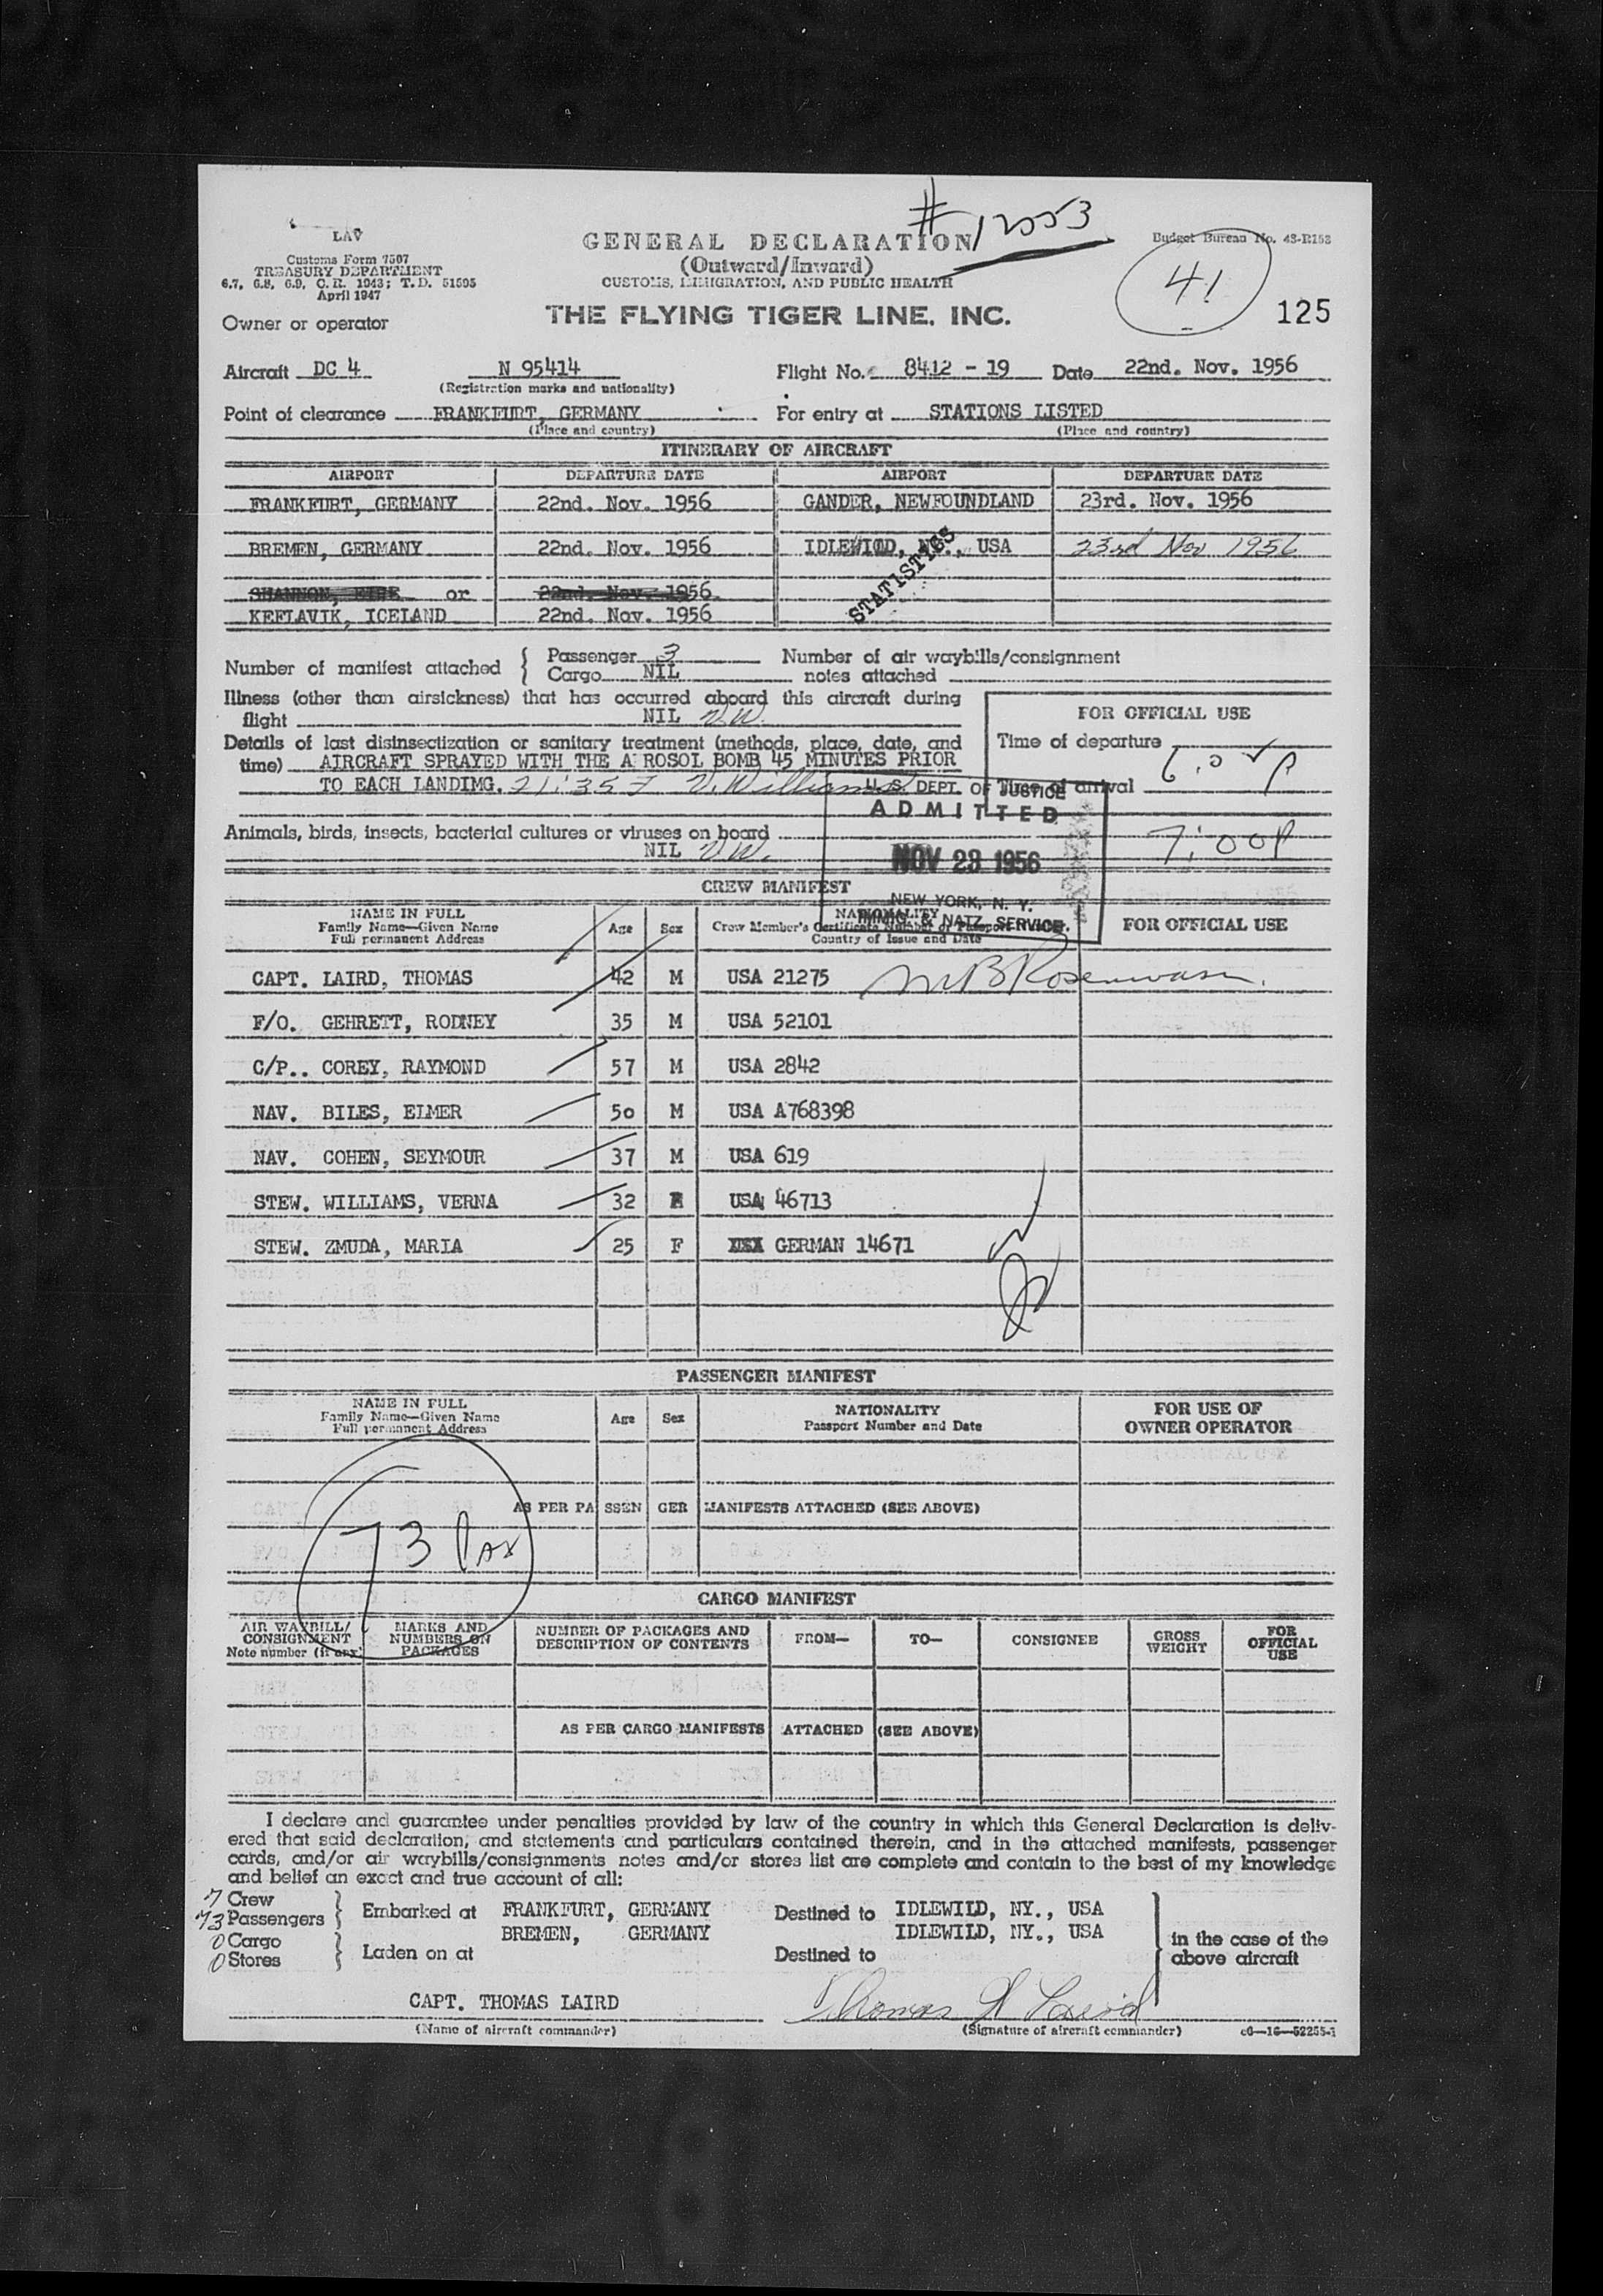 # 12553
LAV
Customs Form 7507
TREASURY DEPARTMENT
6.7, 6.8, 6.9, C.R. 1943; T.D. 51595
April 1947
GENERAL DECLARATION
(Outward/Inward)
CUSTOMS, IMMIGRATION, AND PUBLIC HEALTH
Budget Bureau No. 43-R153
41
125
Owner or operator
THE FLYING TIGER LINE, INC.
Aircraft DC 4 N 95414 Flight No. 8412 - 19 Date 22nd. Nov. 1956
(Registration marks and nationality)
Point of clearance FRANKFURT, GERMANY For entry at STATIONS LISTED
(Place and country) (Place and country)
ITINERARY OF AIRCRAFT
AIRPORT DEPARTURE DATE AIRPORT DEPARTURE DATE
FRANKFURT, GERMANY 22nd. Nov. 1956 GANDER, NEWFOUNDLAND 23rd. Nov. 1956
BREMEN, GERMANY 22nd. Nov. 1956 IDLEWILD, NY., USA 23rd Nov 1956
STATISTICS
SHANNON, EIRE or 22nd. Nov. 1956
KEFLAVIK, ICELAND 22nd. Nov. 1956
Number of manifest attached { Passenger 3 Number of air waybills/consignment
Cargo NIL notes attached
Illness (other than airsickness) that has occurred aboard this aircraft during
flight NIL V.W.
FOR OFFICIAL USE
Details of last disinsectization or sanitary treatment (methods, place, date, and
time) AIRCRAFT SPRAYED WITH THE A ROSOL BOMB 45 MINUTES PRIOR
TO EACH LANDIMG. 21:35Z V. Williams
Time of departure
Time of arrival
U. S. DEPT. OF JUSTICE
ADMITTED
NOV 23 1956
NEW YORK, N. Y.
IMMIG. & NATZ. SERVICE.
7:00P
Animals, birds, insects, bacterial cultures or viruses on board
NIL V.W.
CREW MANIFEST
NAME IN FULL
Family Name—Given Name
Full permanent Address
Age Sex
NATIONALITY
Crew Member's Certificate Number or Passport Number
Country of Issue and Date
FOR OFFICIAL USE
CAPT. LAIRD, THOMAS 42 M USA 21275
F/O. GEHRETT, RODNEY 35 M USA 52101
C/P.. COREY, RAYMOND 57 M USA 2842
NAV. BILES, ELMER 50 M USA A768398
NAV. COHEN, SEYMOUR 37 M USA 619
STEW. WILLIAMS, VERNA 32 F USA 46713
STEW. ZMUDA, MARIA 25 F GERMAN 14671
PASSENGER MANIFEST
NAME IN FULL
Family Name—Given Name
Full permanent Address
Age Sex
NATIONALITY
Passport Number and Date
FOR USE OF
OWNER OPERATOR
AS PER PASSENGER MANIFESTS ATTACHED (SEE ABOVE)
73 Pax
CARGO MANIFEST
AIR WAYBILL/
CONSIGNMENT
Note number (if any)
MARKS AND
NUMBERS ON
PACKAGES
NUMBER OF PACKAGES AND
DESCRIPTION OF CONTENTS
FROM— TO— CONSIGNEE
GROSS
WEIGHT
FOR
OFFICIAL
USE
AS PER CARGO MANIFESTS ATTACHED (SEE ABOVE)
I declare and guarantee under penalties provided by law of the country in which this General Declaration is deliv-
ered that said declaration, and statements and particulars contained therein, and in the attached manifests, passenger
cards, and/or air waybills/consignments notes and/or stores list are complete and contain to the best of my knowledge
and belief an exact and true account of all:
7 Crew
73 Passengers } Embarked at FRANKFURT, GERMANY Destined to IDLEWILD, NY., USA
BREMEN, GERMANY IDLEWILD, NY., USA
0 Cargo
0 Stores } Laden on at Destined to
in the case of the
above aircraft
CAPT. THOMAS LAIRD Thomas Laird
(Name of aircraft commander) (Signature of aircraft commander) c6—16—52255-1